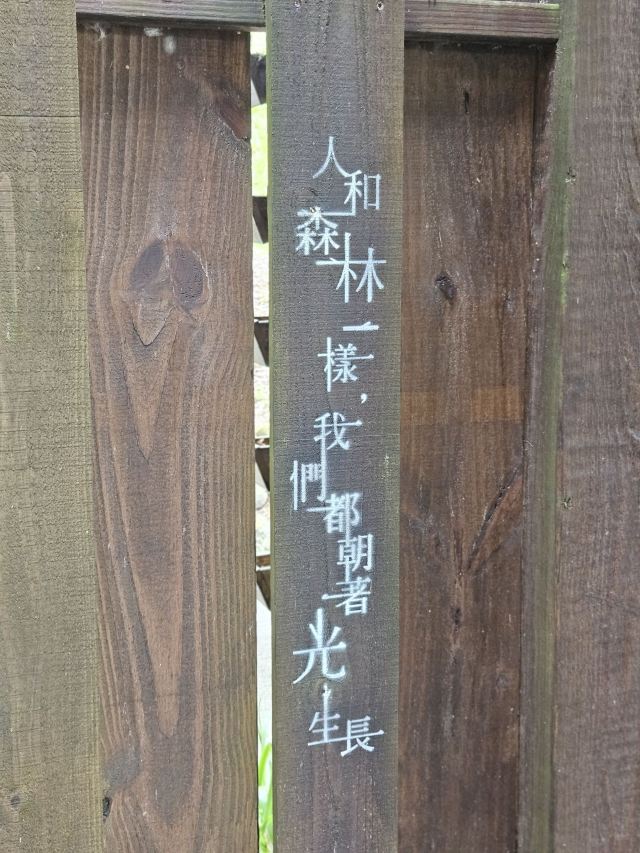 人和森林一樣，我們都朝著光生長